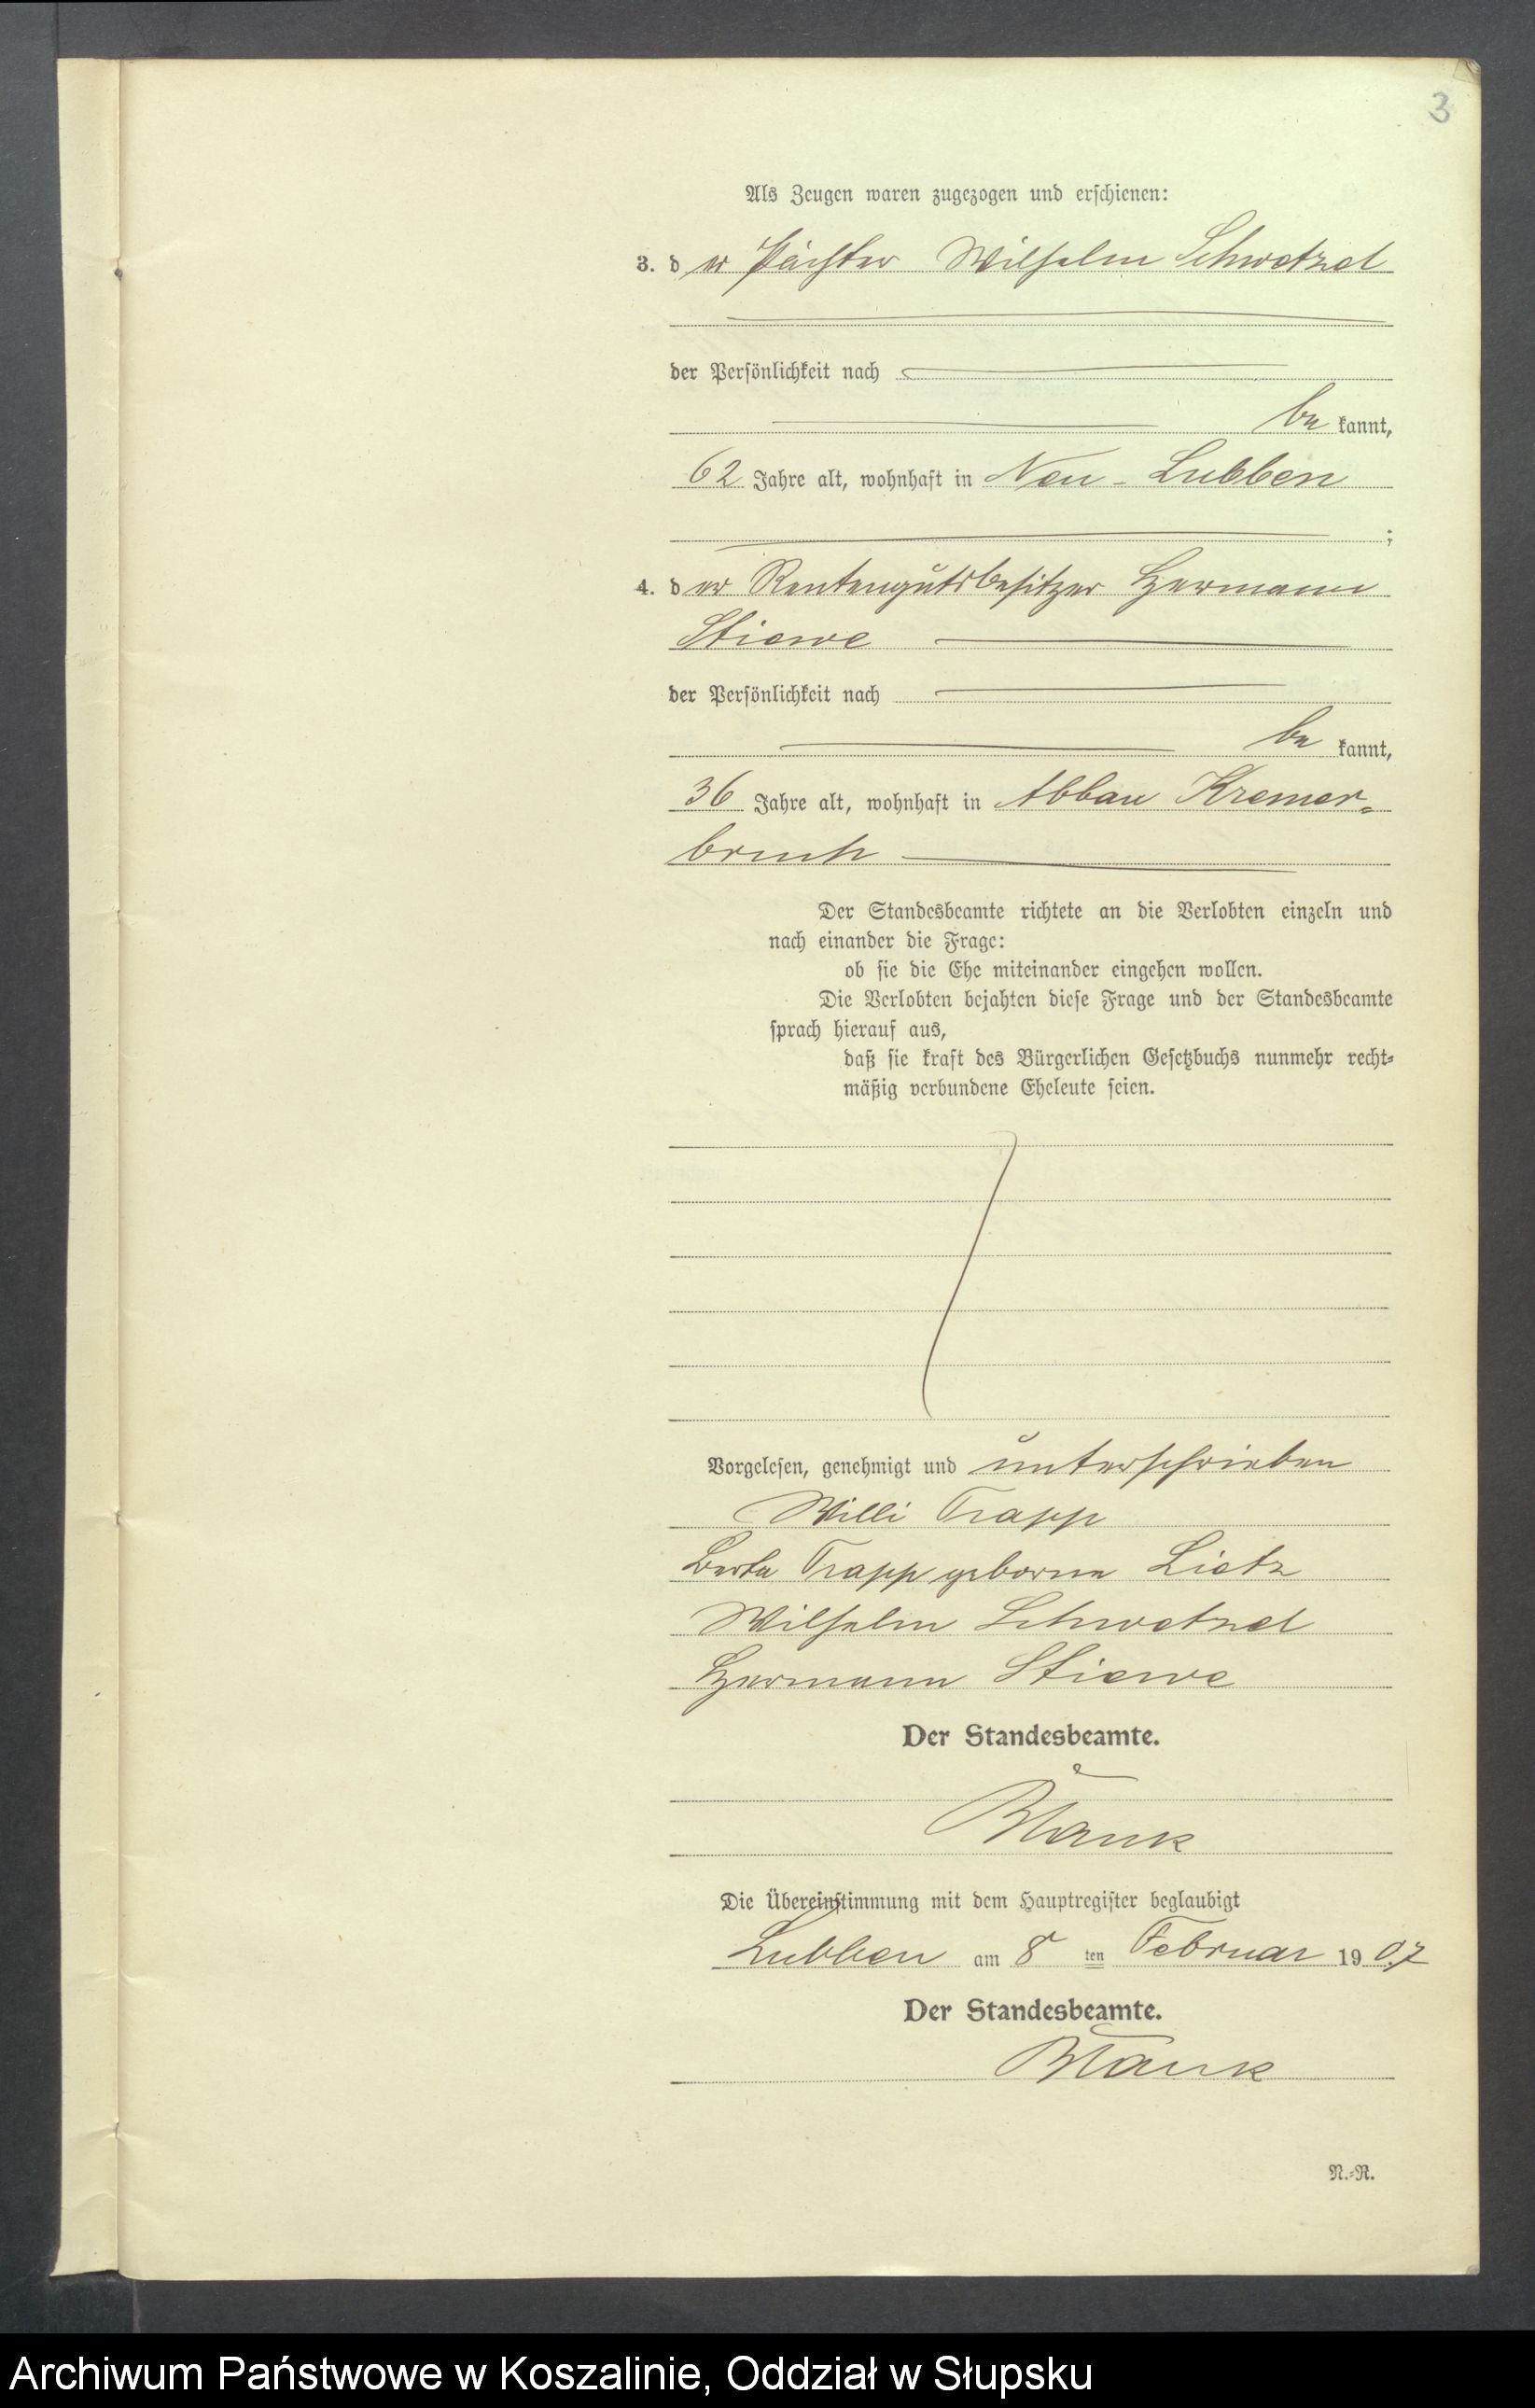 3
Als Zeugen waren zugezogen und erschienen:
3. der Pächter Wilhelm Schwetzel
der Persönlichkeit nach
be kannt,
62 Jahre alt, wohnhaft in Neu-Lubben
;
4. der Rentengutsbesitzer Hermann
Stiewe
der Persönlichkeit nach
be kannt,
36 Jahre alt, wohnhaft in Abbau Kremer=
bruch
Der Standesbeamte richtete an die Verlobten einzeln und
nach einander die Frage:
ob sie die Ehe miteinander eingehen wollen.
Die Verlobten bejahten diese Frage und der Standesbeamte
sprach hierauf aus,
daß sie kraft des Bürgerlichen Gesetzbuchs nunmehr recht=
mäßig verbundene Eheleute seien.
Vorgelesen, genehmigt und unterschrieben
Willi Trapp
Berta Trapp geborne Lietz
Wilhelm Schwetzel
Hermann Stiewe
Der Standesbeamte.
Blank
Die Übereinstimmung mit dem Hauptregister beglaubigt
Lubben am 8 ten Februar 1907
Der Standesbeamte.
Blank
N.=R.
Archiwum Państwowe w Koszalinie, Oddział w Słupsku